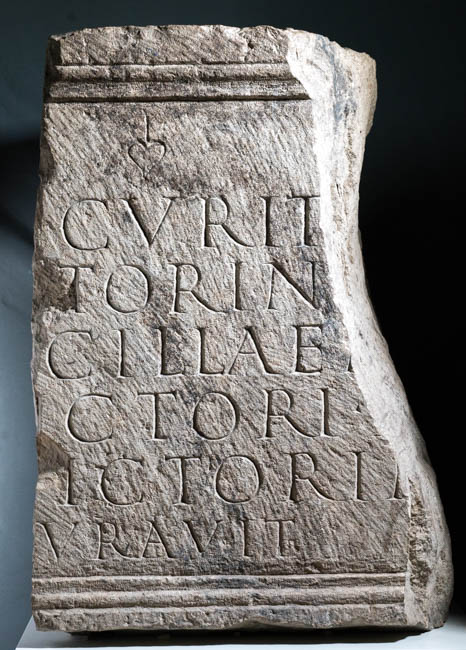 CVRIT
TORIN
CILLAE
CTORI
ICTORI
VRAVIT